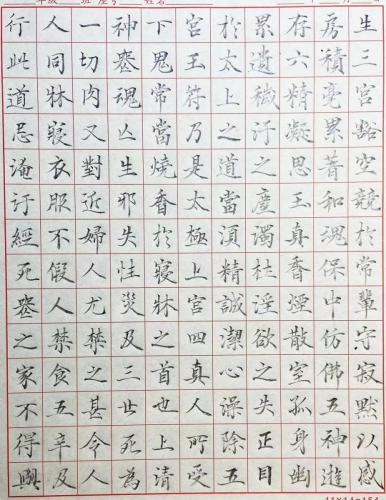 生三宮豁空競於常輩守寂默以感
房積亮累著和魂保中仿佛五神遊
存六精凝思玉真香煙散室孤身幽
累遺穢汙之塵濁杜淫欲之失正目
於太上之道當須精誠潔心澡除五
宮王符乃是太極上宮四真人所受
下鬼常當燒香於寢牀之首也上清
神喪魂亾生邪失性災及三世死為
一切肉又對近婦人尤禁之甚令人
人同牀寢衣服不假人禁食五辛及
行此道忌淹汙經死喪之家不得與